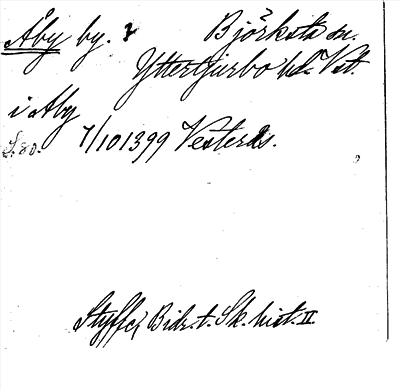 Åby by. ? Björksta sn.
Yttertjurbo hd. Vstm.
i Aby
S. 80. 7/10 1399 Vesterås.
Styffe, Bidr. t. Sk. hist. II.